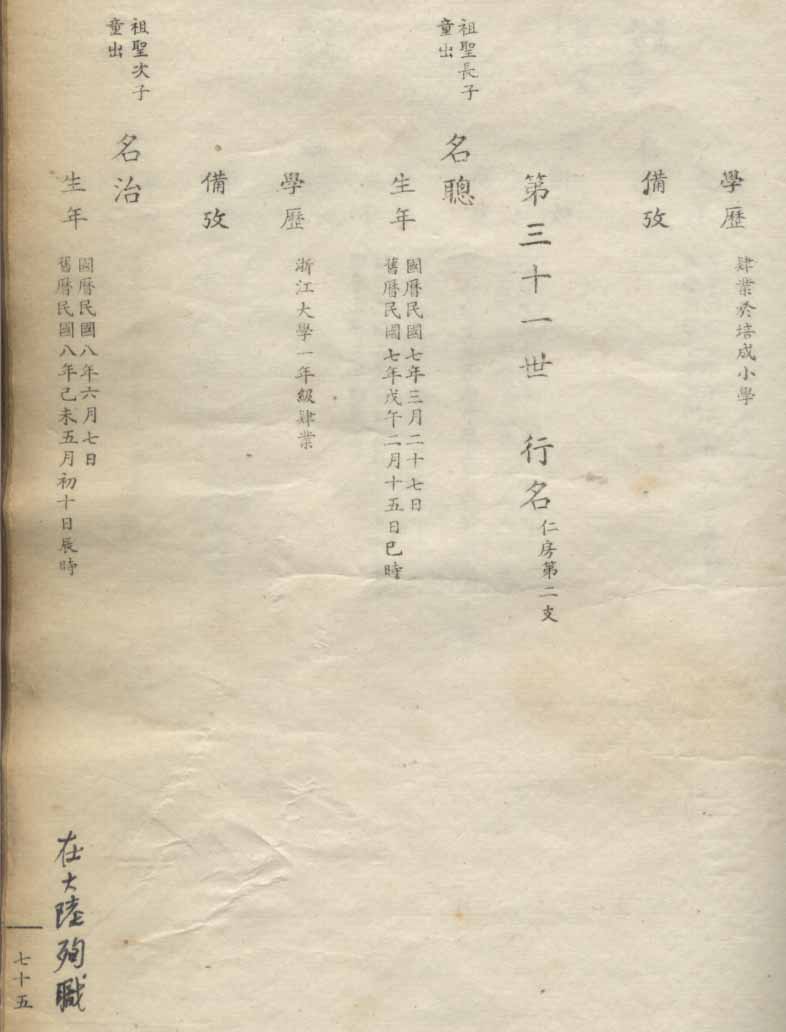 學歷 肄業於培成小學
備攷
第三十一世 行名 仁房第二支
祖聖長子
童出
名聰
生年 國曆民國七年三月二十七日
舊曆民國七年戊午二月十五日巳時
學歷 浙江大學一年級肄業
備攷
祖聖次子
童出
名治
生年 國曆民國八年六月七日
舊曆民國八年己未五月初十日辰時
在大陸殉職
七十五